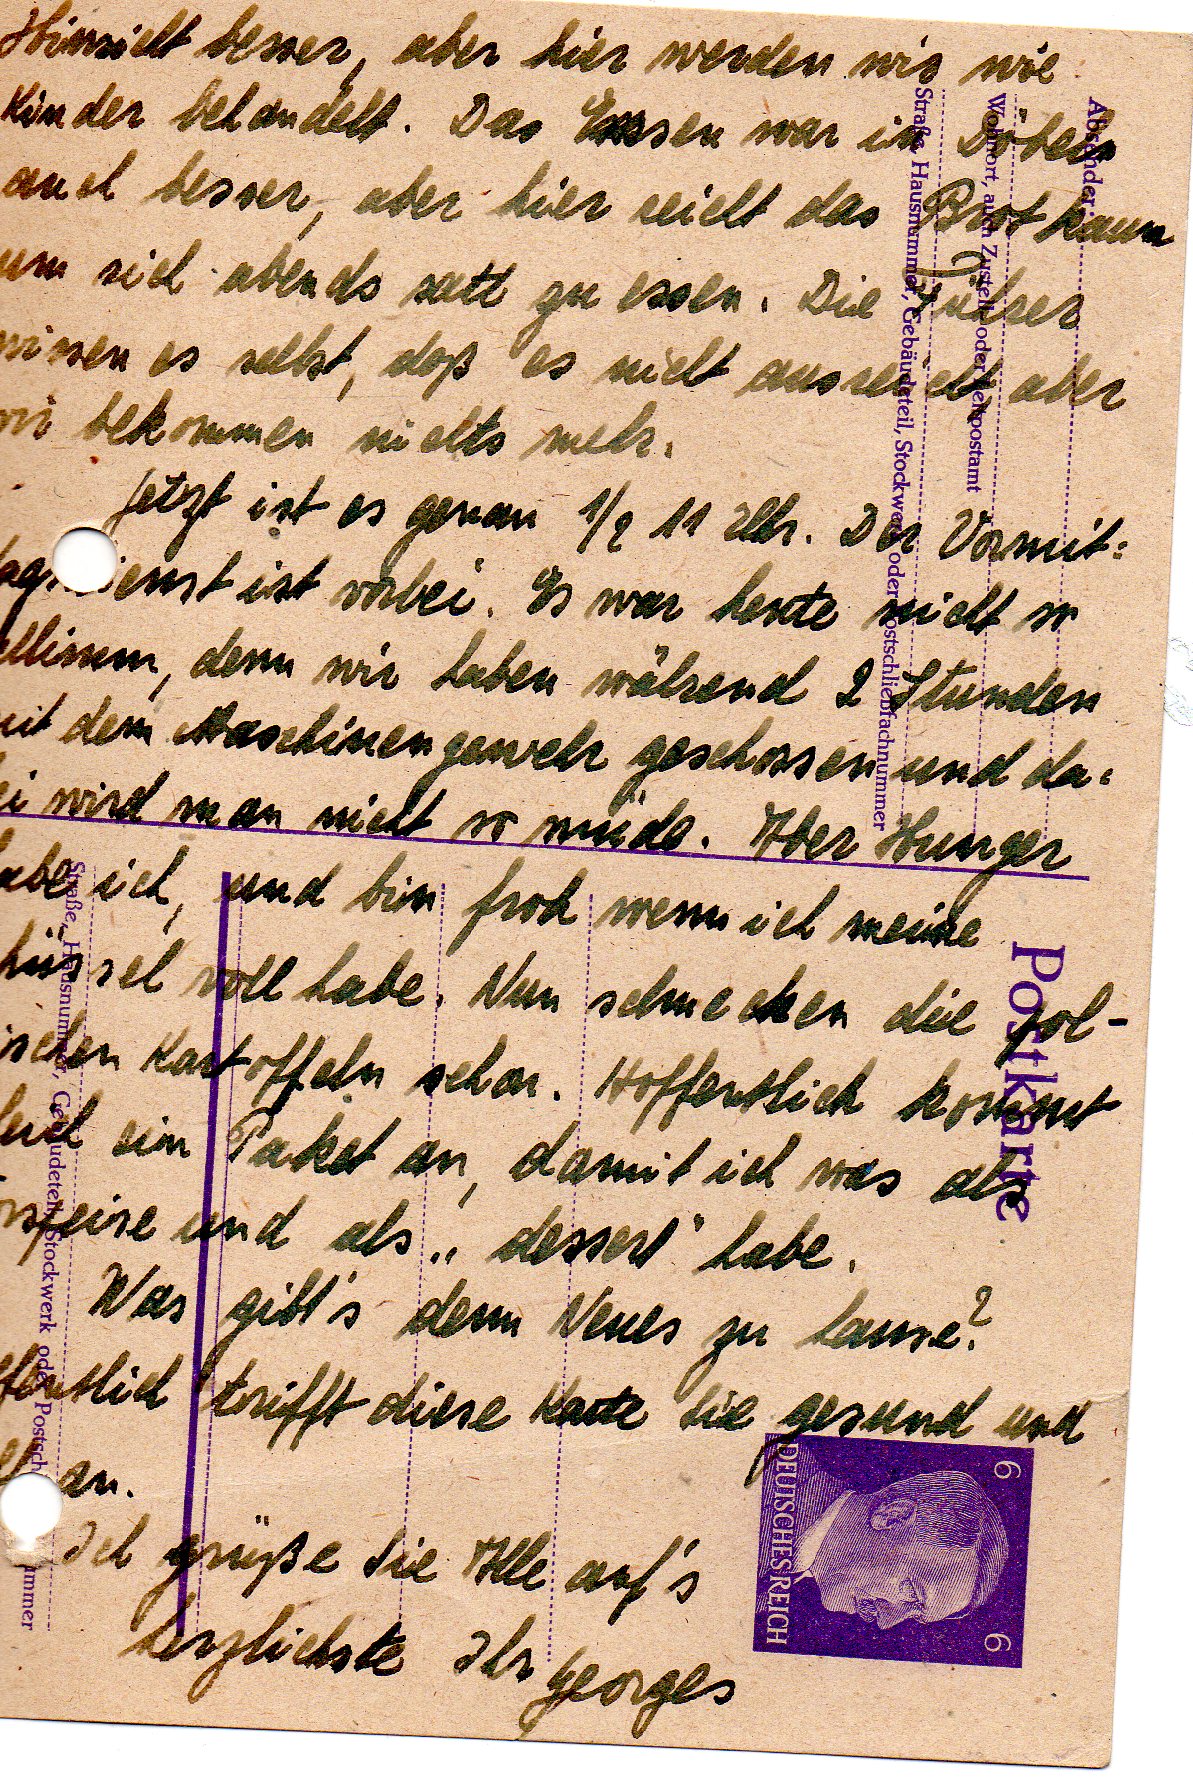 Hinsicht besser, aber hier werden wir wie
Kinder behandelt. Das Essen war in Döbeln
auch besser, aber hier reicht das Brot kaum
um sich abends satt zu essen. Die Führer
wissen es selbst, daß es nicht ausreicht, aber
wir bekommen nichts mehr.
Jetzt ist es genau 1/2 11 Uhr. Der Vormit=
tagsdienst ist vorbei. Es war heute nicht so
schlimm, denn wir haben während 2 Stunden
mit dem Maschinengewehr geschossen und da=
bei wird man nicht so müde. Aber Hunger
habe ich, und bin froh wenn ich meine
Schüssel voll habe. Nun schmecken die pol-
nischen Kartoffeln schon. Hoffentlich kommt
ein Paket an, damit ich was als
Vorspeise und als „dessert" habe.
Was gibt's denn Neues zu hause?
Hoffentlich trifft diese Karte Sie gesund und
an.
Ich grüße Sie Alle auf's
herzlichste Ihr Georges
Absender:
Wohnort, auch Zustell- oder Leitpostamt
Straße, Hausnummer, Gebäudeteil, Stockwerk oder Postschließfachnummer
Postkarte
Straße, Hausnummer, Gebäudeteil, Stockwerk oder Postsch
ummer
DEUTSCHES REICH
6
6